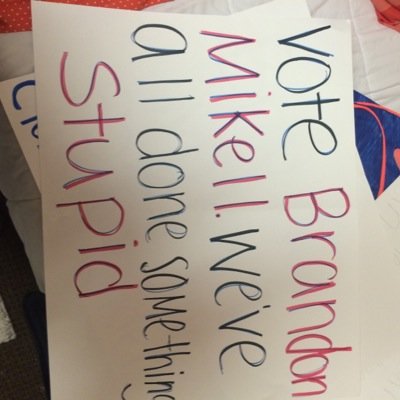 Vote Brandon
Mikell. We've
all done something
Stupid